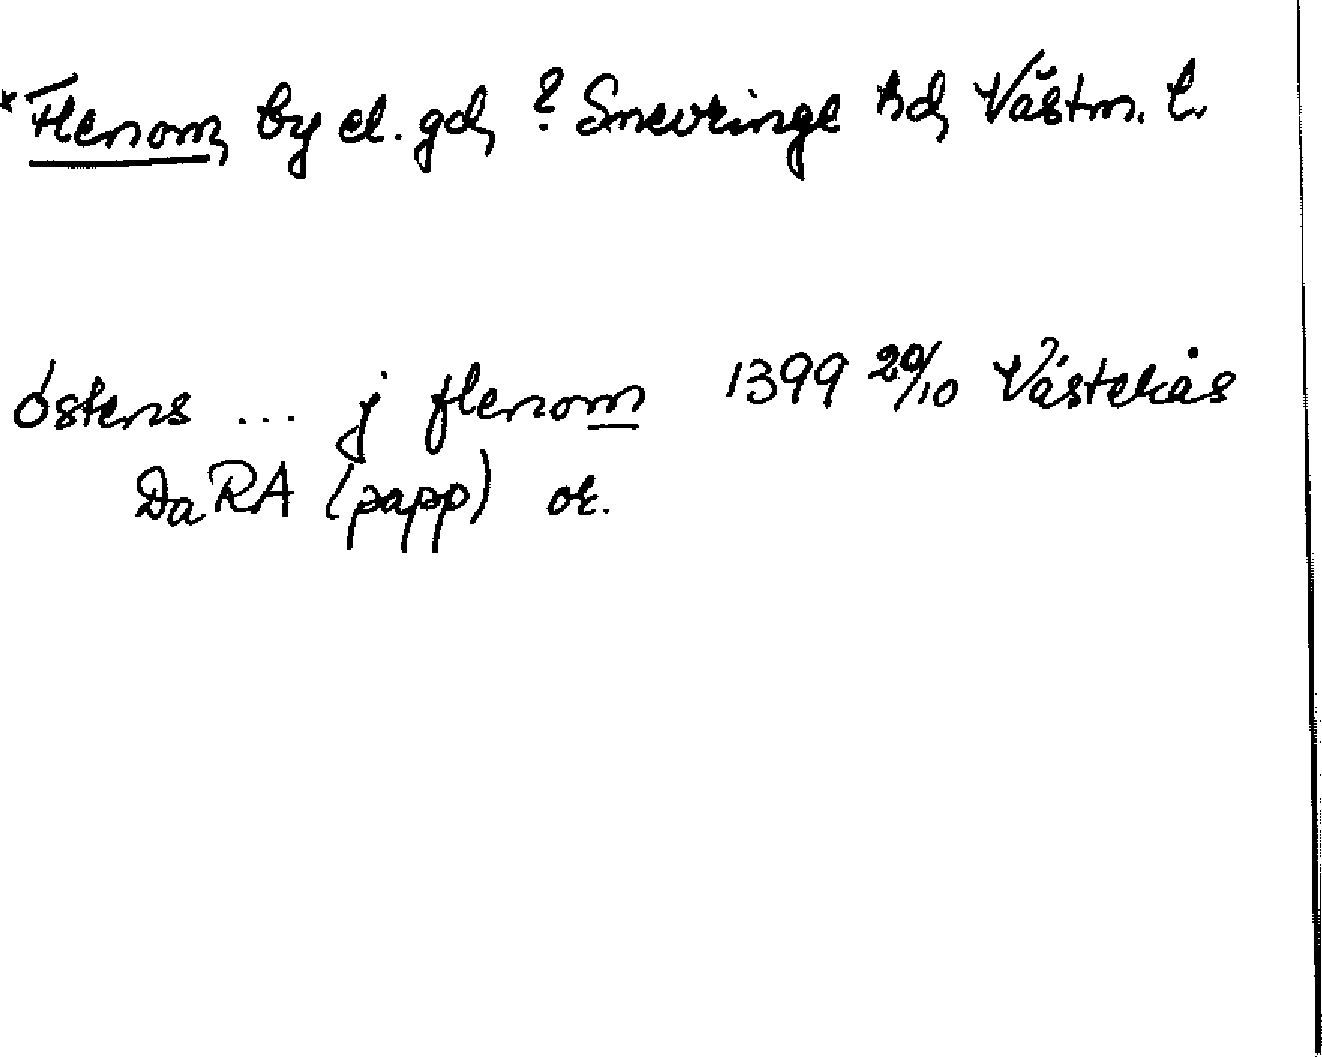 *Flenom, by el. gd, ? Snevringe hd, Västm. l.
östens ... j flenom 1399 20/10 Västerås
DaRA (papp) or.